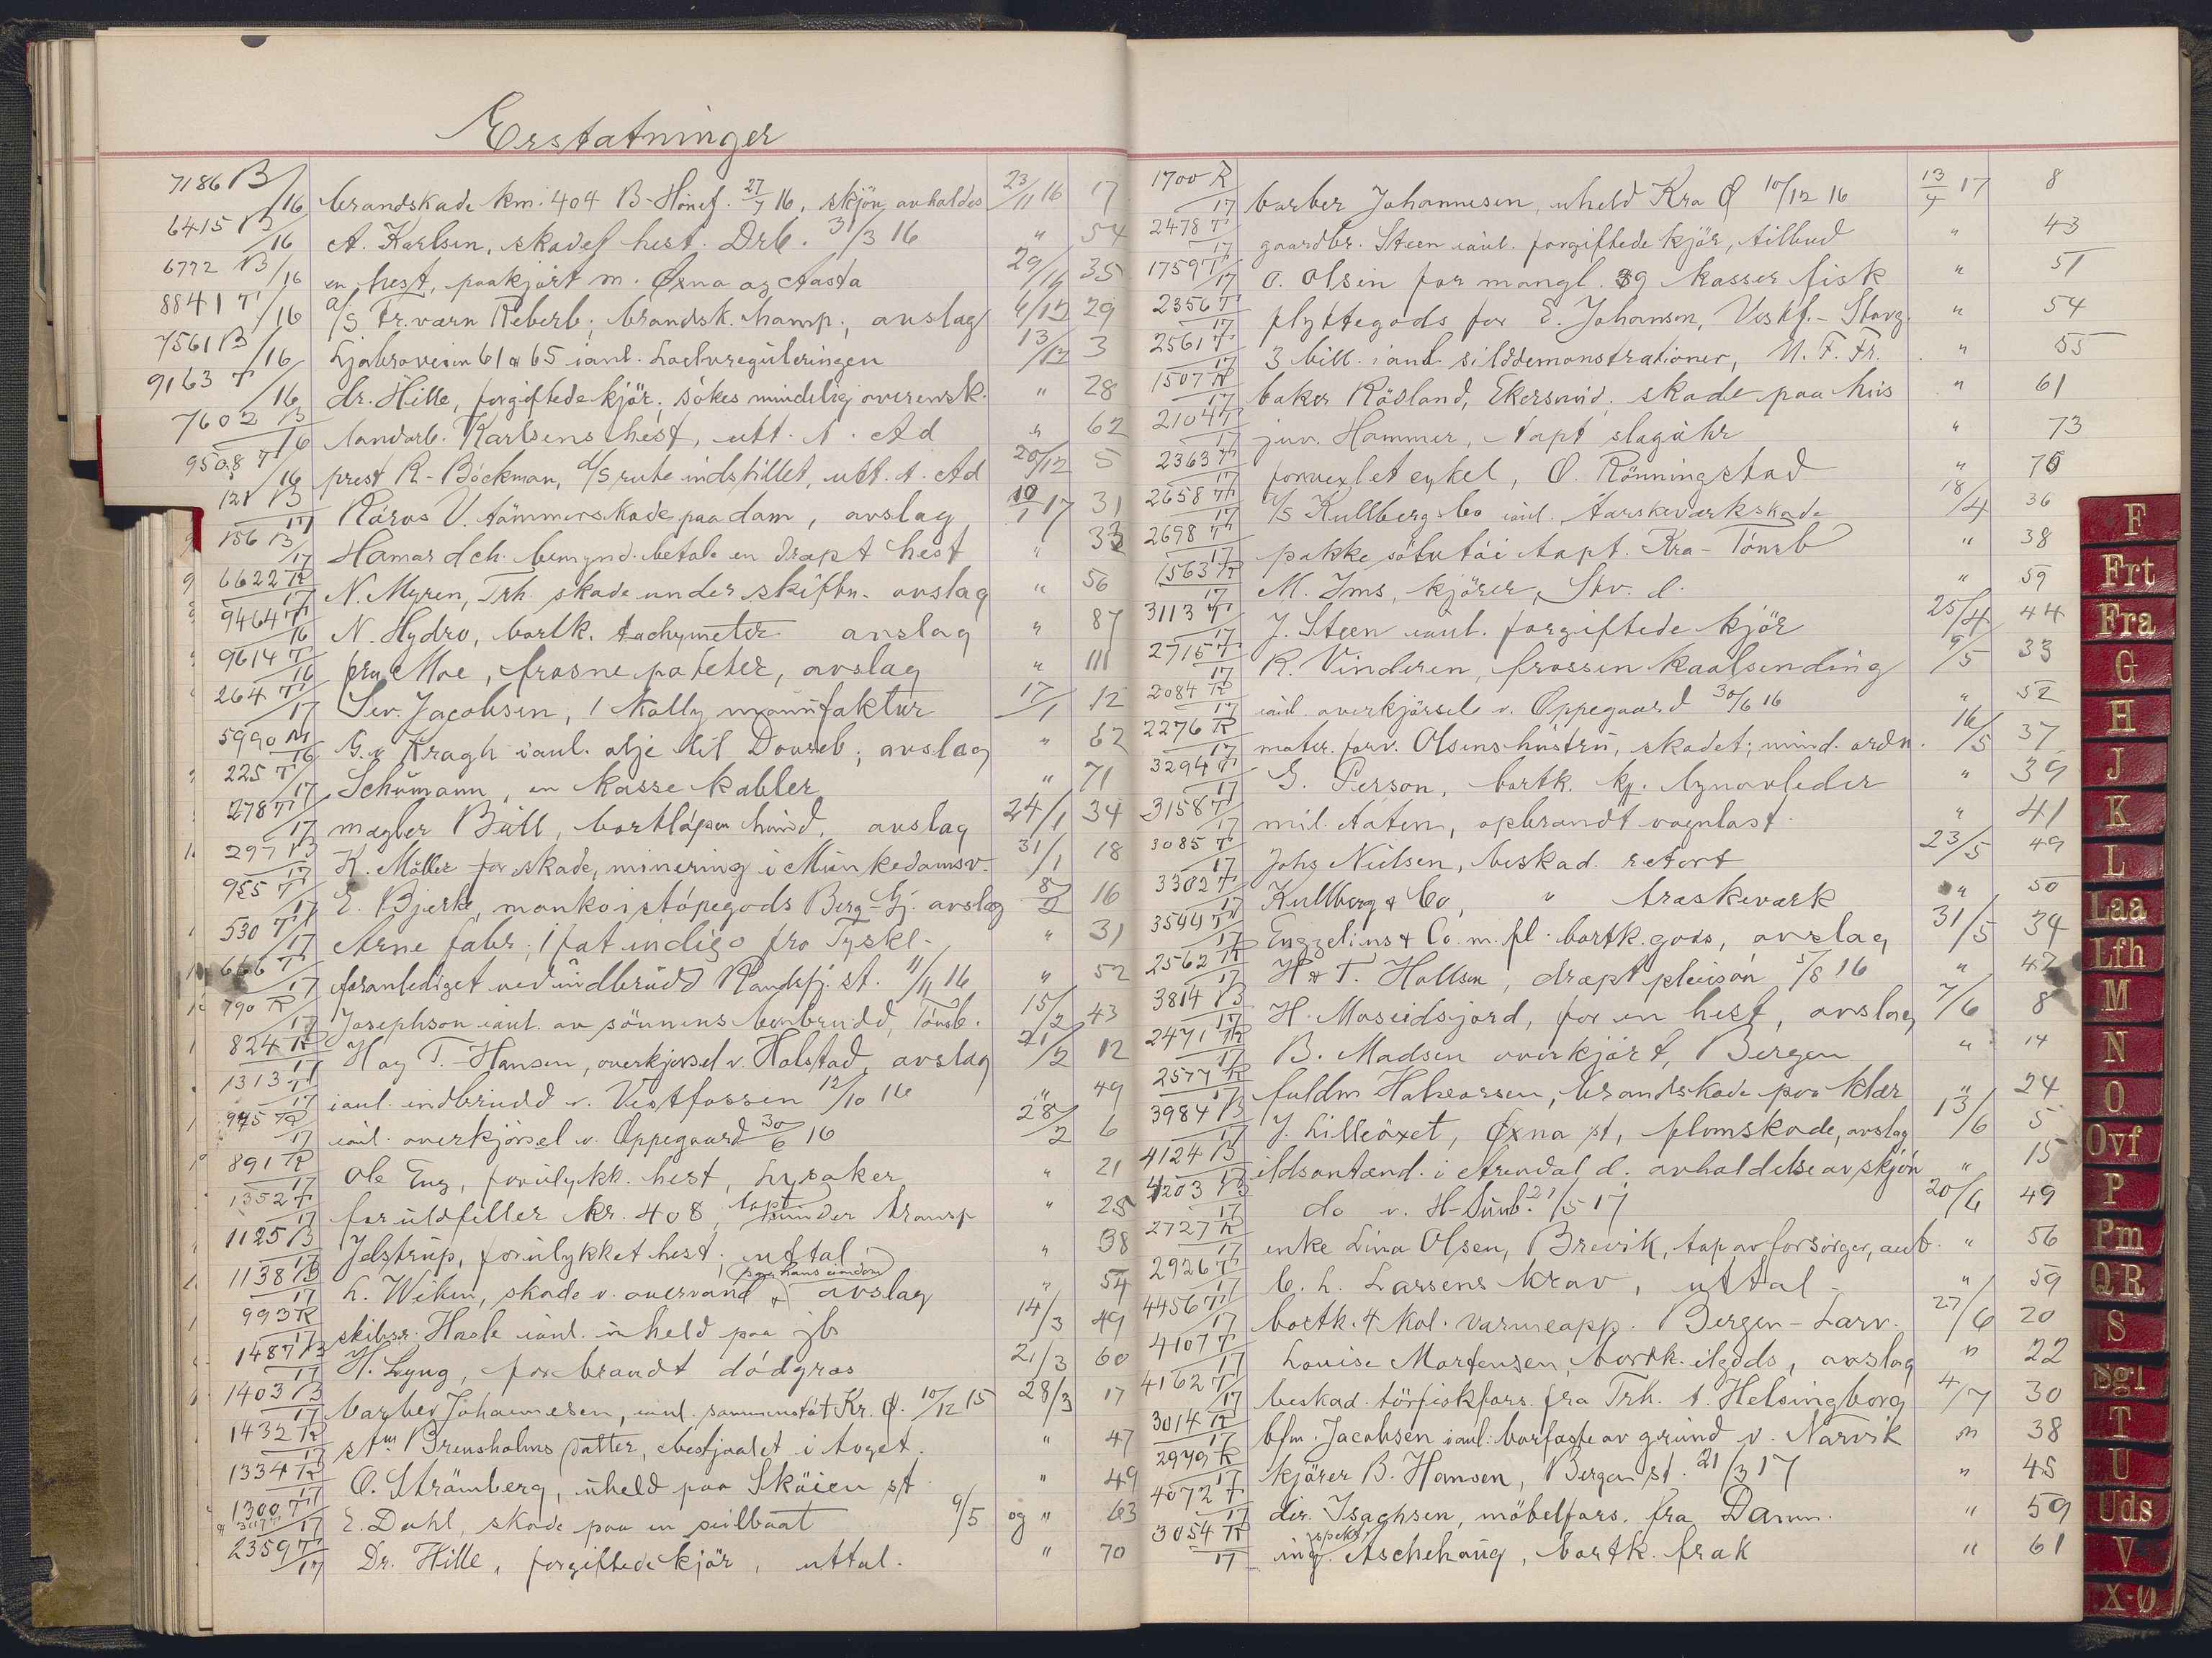 Erstatninger
7186 B/16 brandskade km. 404 B-Hönef. 27/7 16, skjön avholdes 23/11 16 17
6415 B/16 A. Karlsen, skadet hest. Drb. 31/3 16 " 54
6772 B/16 en hest, paakjört m. Øxna og Aasta 29/11 35
8841 T/16 a/s Fr.værn Reberb., brandsk. hamp., avslag 6/12 29
7561 B/16 Ljabroveien 61 & 65 i anl. 13/12 3
9163 T/16 dr. Hille, forgiftede kjör, sökes mindelig overensk. " 28
7602 B/16 landarb. Karlsens hest, utt. t. Ad " 62
9508 T/16 prest R-Böckman, d/s rute indstillet, utt. t. Ad 20/12 5
121 B/17 Röros V. tömmerskade paa dam, avslag 10/1 17 31
156 B/17 Hamar dch. bemynd. betale en dræpt hest " 33
6622 R/17 N. Myren, Trh. skade under skiftn. avslag " 56
9464 T/16 N. Hydro, bortk. tachymeter avslag " 87
9614 T/16 fru Moe, frosne poteter, avslag " 111
264 T/17 Sev. Jacobsen, 1 kolly manufaktur 17/1 12
5990 M/16 G. v Kragh i anl. olje til Dovreb., avslag " 62
225 T/17 Schumann, en kasse kabler " 71
278 T/17 mægler Bull, bortlöpen hund, avslag 24/1 34
297 B/17 K. Möller for skade, minering i Munkedamsv. 31/1 18
955 T/17 E. Bjerke, manko i stöpegods Berg-Gj. avslag 8/2 16
530 T/17 Arne fabr., 1 fat indigo fra Tyskl. " 31
666 T/17 foranlediget ved indbrudd Randsfj. st. 11/11 16 " 52
790 R/17 Josephson i anl. av sönnens benbrudd, Tönsb. 15/2 43
824 R/17 H og T. Hansen, overkjørsel v. Holstad, avslag 21/2 12
1313 T/17 i anl. indbrudd v. Vestfossen 12/10 16 " 49
945 R/17 i anl. overkjørsel v. Oppegaard 30/6 16 28/2 6
891 R/17 Ole Eng, forulykk. hest, Lysaker " 21
1352 T/17 for uldfiller kr. 408, tapt under transp " 25
1125 B/17 Jelstrup, forulykket hest, uttal. " 38
1138 B/17 L. Wiken, skade v. overvand paa hans eiendom avslag " 54
993 R/17 skibsr. Hasle i anl. uheld paa jb 14/3 49
1487 B/17 H. Lyng, for brandt dödgras 21/3 60
1403 B/17 barber Johannesen, i anl. sammenstöt Kr. Ø. 10/12 15 28/3 17
1432 R/17 stm Brensholms datter, bestjaalet i toget. " 47
1334 R/17 O. Strömberg, uheld paa Sköien st " 49
1300 T/17 E. Dahl, skade paa en seilbaat 9/5 og " 63
2359 T/17 Dr. Hille, forgiftede kjör, uttal. " 70
1700 R/17 barber Johannesen, uheld Kra Ø 10/12 16 13/4 17 8
2478 T/17 gaardbr. Steen i anl. forgiftede kjör, tilbud " 43
1759 T/17 O. Olsen for mangl. 39 kasser fisk " 51
2356 T/17 flyttegods for E. Johanson, Vestf. - Stavg. " 54
2561 T/17 3 bill. i anl. silddemonstrationer, N. F. Fr. " 55
1507 R/17 baker Rösland, Ekersund, skade paa hus " 61
2104 T/17 juv. Hammer, tapt slaguhr " 73
2363 T/17 forvexlet cykel, O. Rönningstad " 75
2658 T/17 a/s Kullberg & Co i anl. tærskeværkskade 18/4 36
2698 T/17 pakke sötutöi tapt. Kra-Tönsb " 38
1563 R/17 M. Ims, kjörer, Stv. d. " 59
3113 T/17 J. Steen i anl. forgiftede kjör 25/4 44
2715 T/17 R. Vinderen, frossen kaalsending 9/5 33
2084 R/17 i anl. overkjørsel v. Oppegaard 30/6 16 " 52
2276 R/17 mater.forv. Olsens hustru, skadet; mind. ordn. 16/5 37
3294 T/17 G. Person, bortk. kj. lynavleder " 39
3158 T/17 mil. etaten, opbrandt vognlast " 41
3085 T/17 Johs Nielsen, beskad. retort 23/5 49
3302 T/17 Kullberg & Co, " træskeværk " 50
3544 T/17 Engzelius & Co. m. fl. bortk. gods, avslag 31/5 34
2562 R/17 H & T. Hollsen, dræpt 5/8 16 " 42
3814 B/17 H. Moseidsjord, for en hest, avslag 7/6 8
2471 R/17 B. Madsen overkjört, Bergen " 14
2577 R/17 fuldm Haakonsen, brandskade paa klær " 24
3984 B/17 J. Lilleöxet, Øxna st, flomskade, avslag 13/6 5
4124 B/17 ildsantænd. i Arendal d. avholdelse av skjön " 15
4203 B/17 do v. H-Sunb. 21/5 17 20/6 49
2727 R/17 enke Lina Olsen, Brevik, tap av forsörger, anb. " 56
2926 T/17 C. L. Larsens krav, uttal - " 59
4456 T/17 bortk. 4 kol. varmeapp. Bergen - Larv. 27/6 20
4107 T/17 Louise Mortensen, bortk. ilgods, avslag " 22
4162 T/17 beskad. törfiskfors. fra Trh. t. Helsingborg 4/7 30
3014 R/17 bfm. Jacobsen i anl. bortfæste av grund v. Narvik " 38
2979 R/17 kjörer B. Hansen, Bergen st. 21/3 17 " 45
4072 T/17 dir. Isachsen, möbelfors. fra Danm. " 59
3054 R/17 ing. Aschehoug, bortk. frak " 61
F
Frt
Fra
G
H
J
K
L
Laa
Lfh
M
N
O
Ovf
P
Pm
QR
S
Sgl
T
U
Uds
V
X-Ø